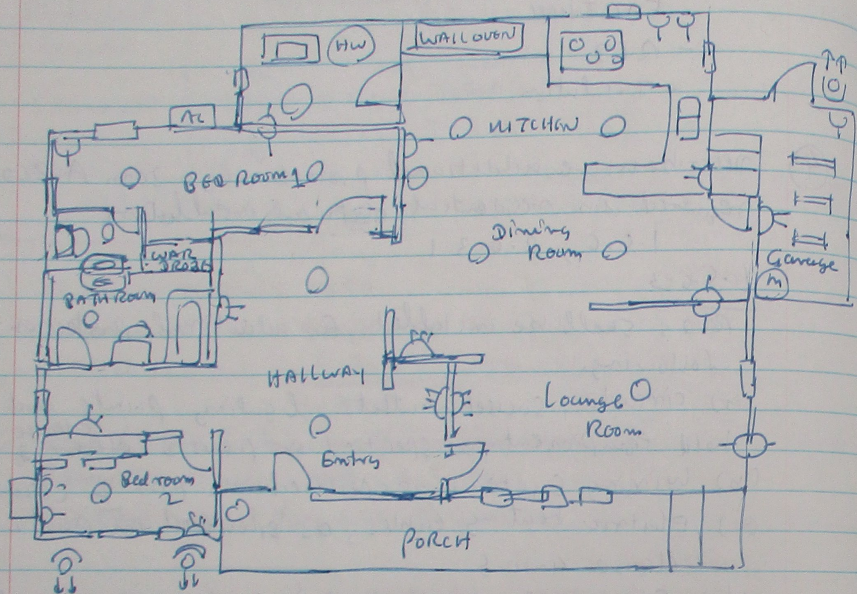 HW
WALL OVEN
AC
KITCHEN
BED ROOM 1
Dining
Room
WAR
DROBE
Garage
M
BATHROOM
HALLWAY
Lounge
Room
Entry
Bedroom
2
PORCH